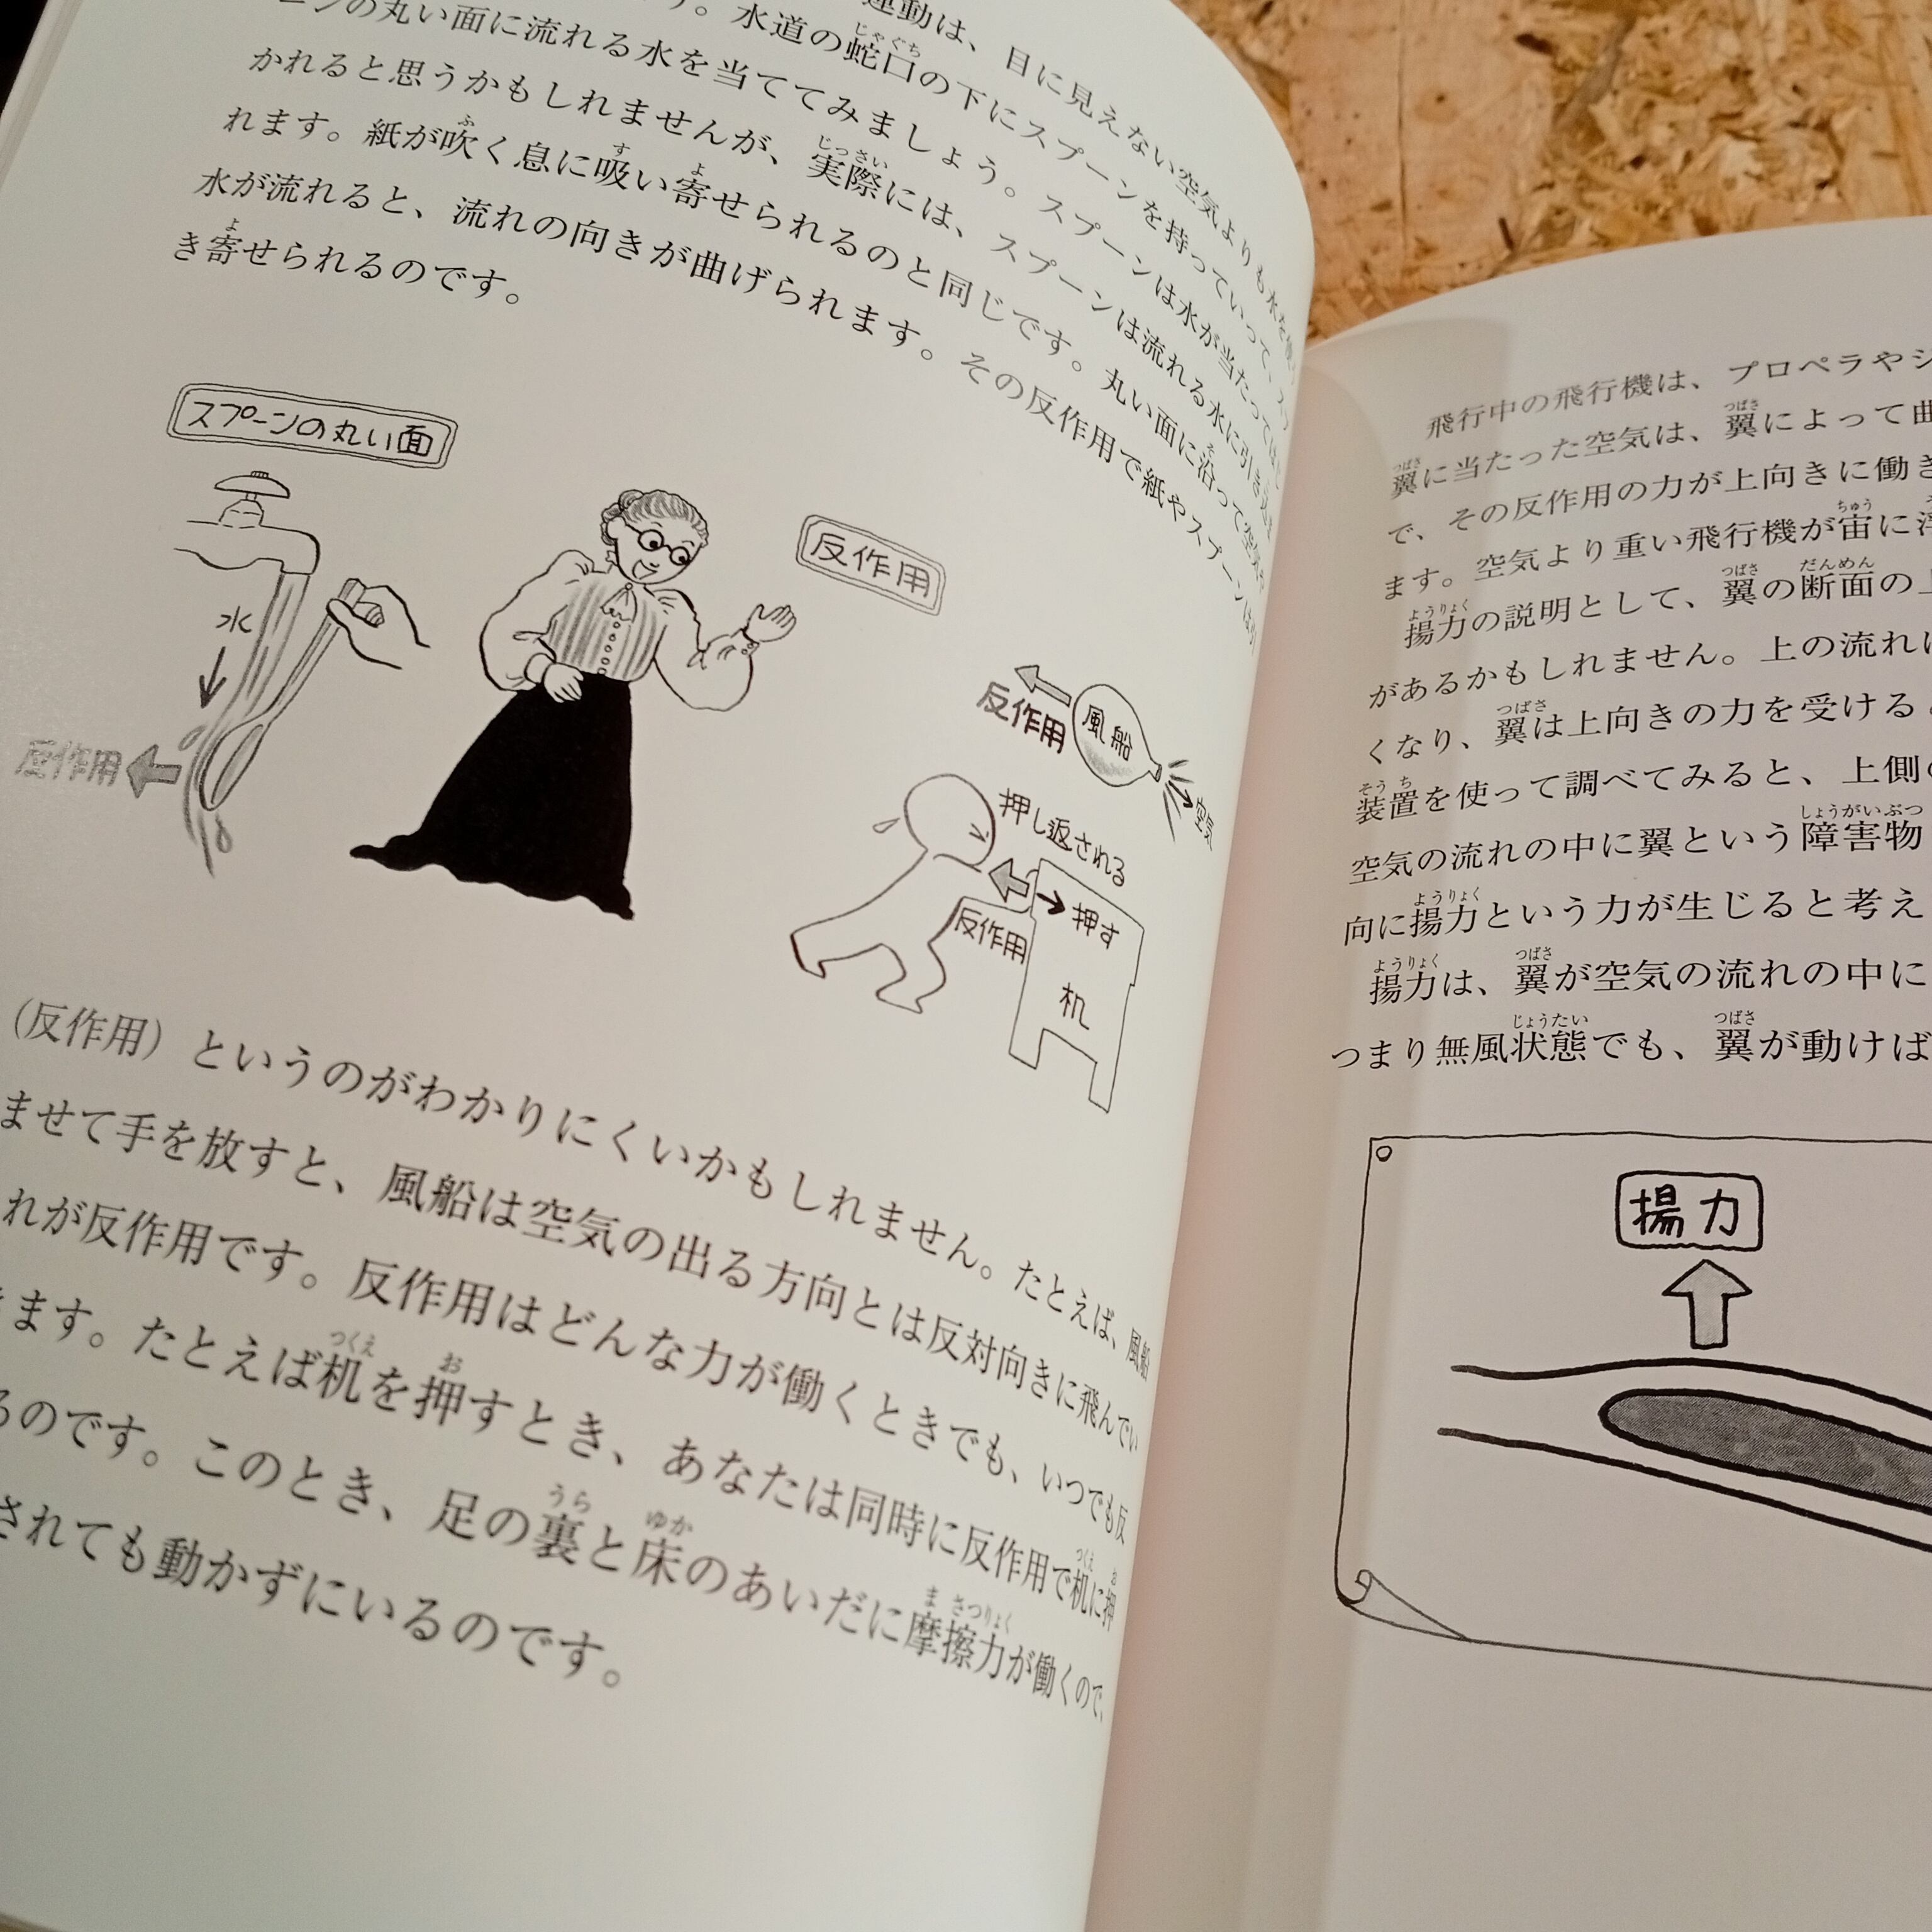 運動は、目に見えない空気よりも水を使
水道の蛇口の下にスプーンを持っていって、
の丸い面に流れる水を当ててみましょう。スプーンは水が当たって
かれると思うかもしれませんが、実際には、スプーンは流れる水に引き
れます。紙が吹く息に吸い寄せられるのと同じです。丸い面に沿って空気や
水が流れると、流れの向きが曲げられます。その反作用で紙やスプーンは
き寄せられるのです。
スプーンの丸い面
水
反作用
反作用
反作用
風船
空気
押し返される
反作用
押す
机
（反作用）というのがわかりにくいかもしれません。たとえば、風船
ませて手を放すと、風船は空気の出る方向とは反対向きに飛んでい
れが反作用です。反作用はどんな力が働くときでも、いつでも反
ます。たとえば机を押すとき、あなたは同時に反作用で机に押
るのです。このとき、足の裏と床のあいだに摩擦力が働くので、
されても動かずにいるのです。
飛行中の飛行機は、プロペラやジ
翼に当たった空気は、翼によって曲
で、その反作用の力が上向きに働き
ます。空気より重い飛行機が宙に浮
揚力の説明として、翼の断面の上
があるかもしれません。上の流れは
くなり、翼は上向きの力を受ける
装置を使って調べてみると、上側の
空気の流れの中に翼という障害物
向に揚力という力が生じると考え
揚力は、翼が空気の流れの中に
つまり無風状態でも、翼が動けば
揚力